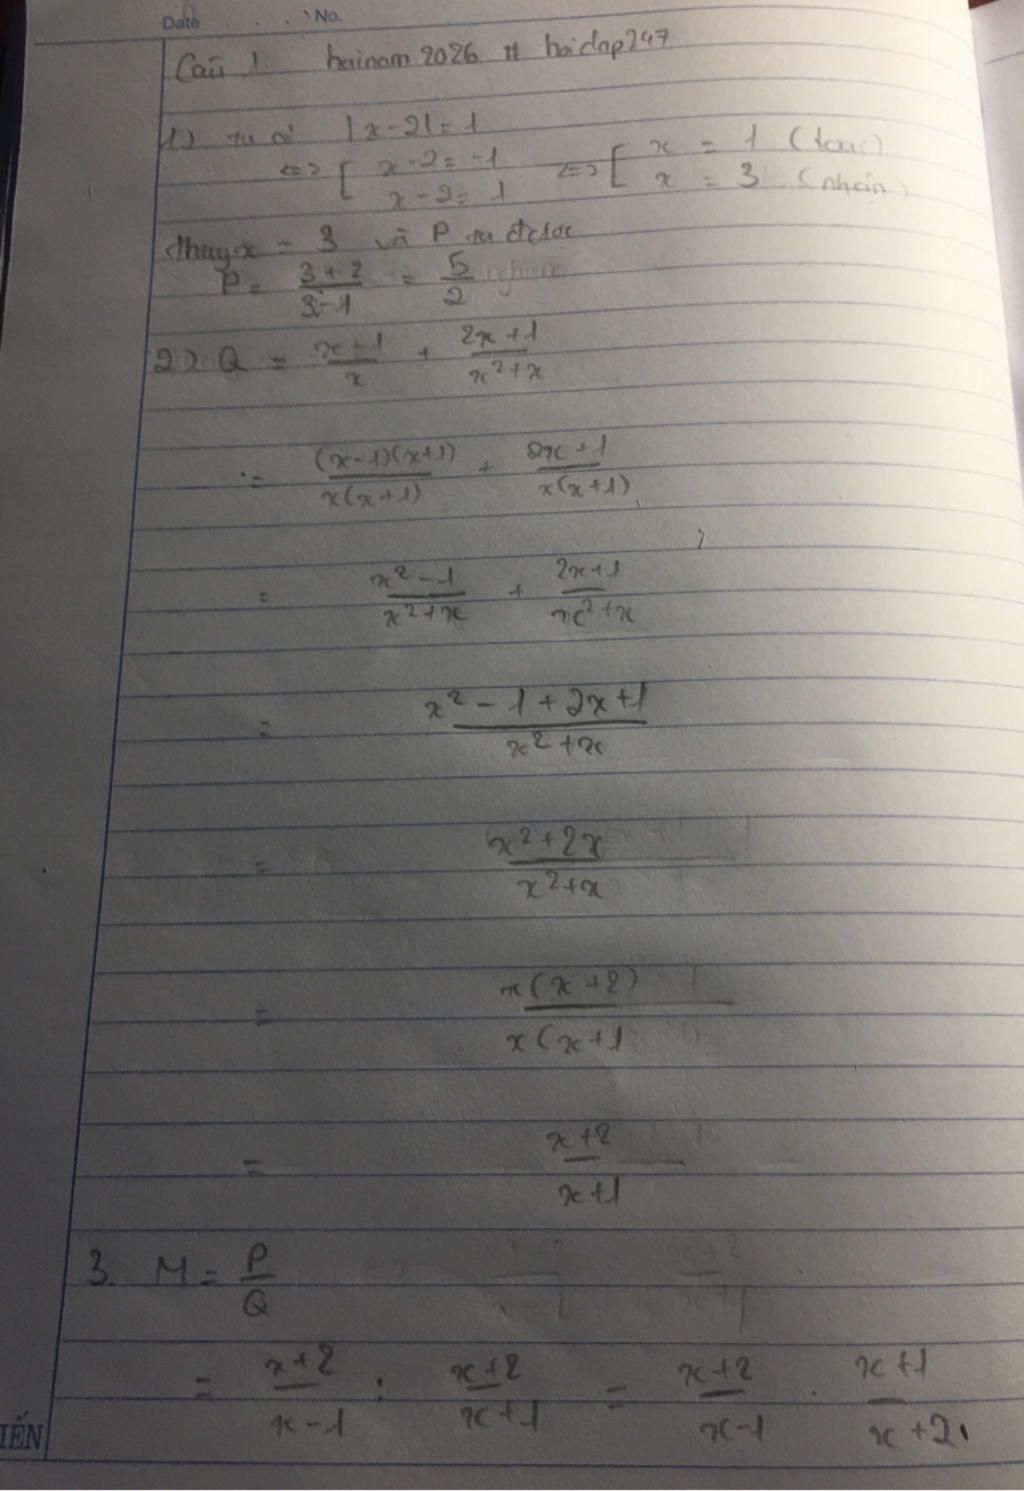 Date . . . No.
Câu 1. hainam2026 # hoidap247
1) ta có |x-2| = 1
<=> [ x-2 = -1 <=> [ x = 1 (loại)
x-2 = 1 x = 3 (nhận)
thay x = 3 và P ta được
P = \frac{3+2}{3-1} = \frac{5}{2}
2) Q = \frac{x+1}{x} + \frac{2x+1}{x^2+x}
= \frac{(x-1)(x+1)}{x(x+1)} + \frac{2x+1}{x(x+1)}
= \frac{x^2-1}{x^2+x} + \frac{2x+1}{x^2+x}
= \frac{x^2-1+2x+1}{x^2+x}
= \frac{x^2+2x}{x^2+x}
= \frac{x(x+2)}{x(x+1}
= \frac{x+2}{x+1}
3. M = \frac{P}{Q}
= \frac{x+2}{x-1} : \frac{x+2}{x+1} = \frac{x+2}{x-1} . \frac{x+1}{x+2}
IẾN